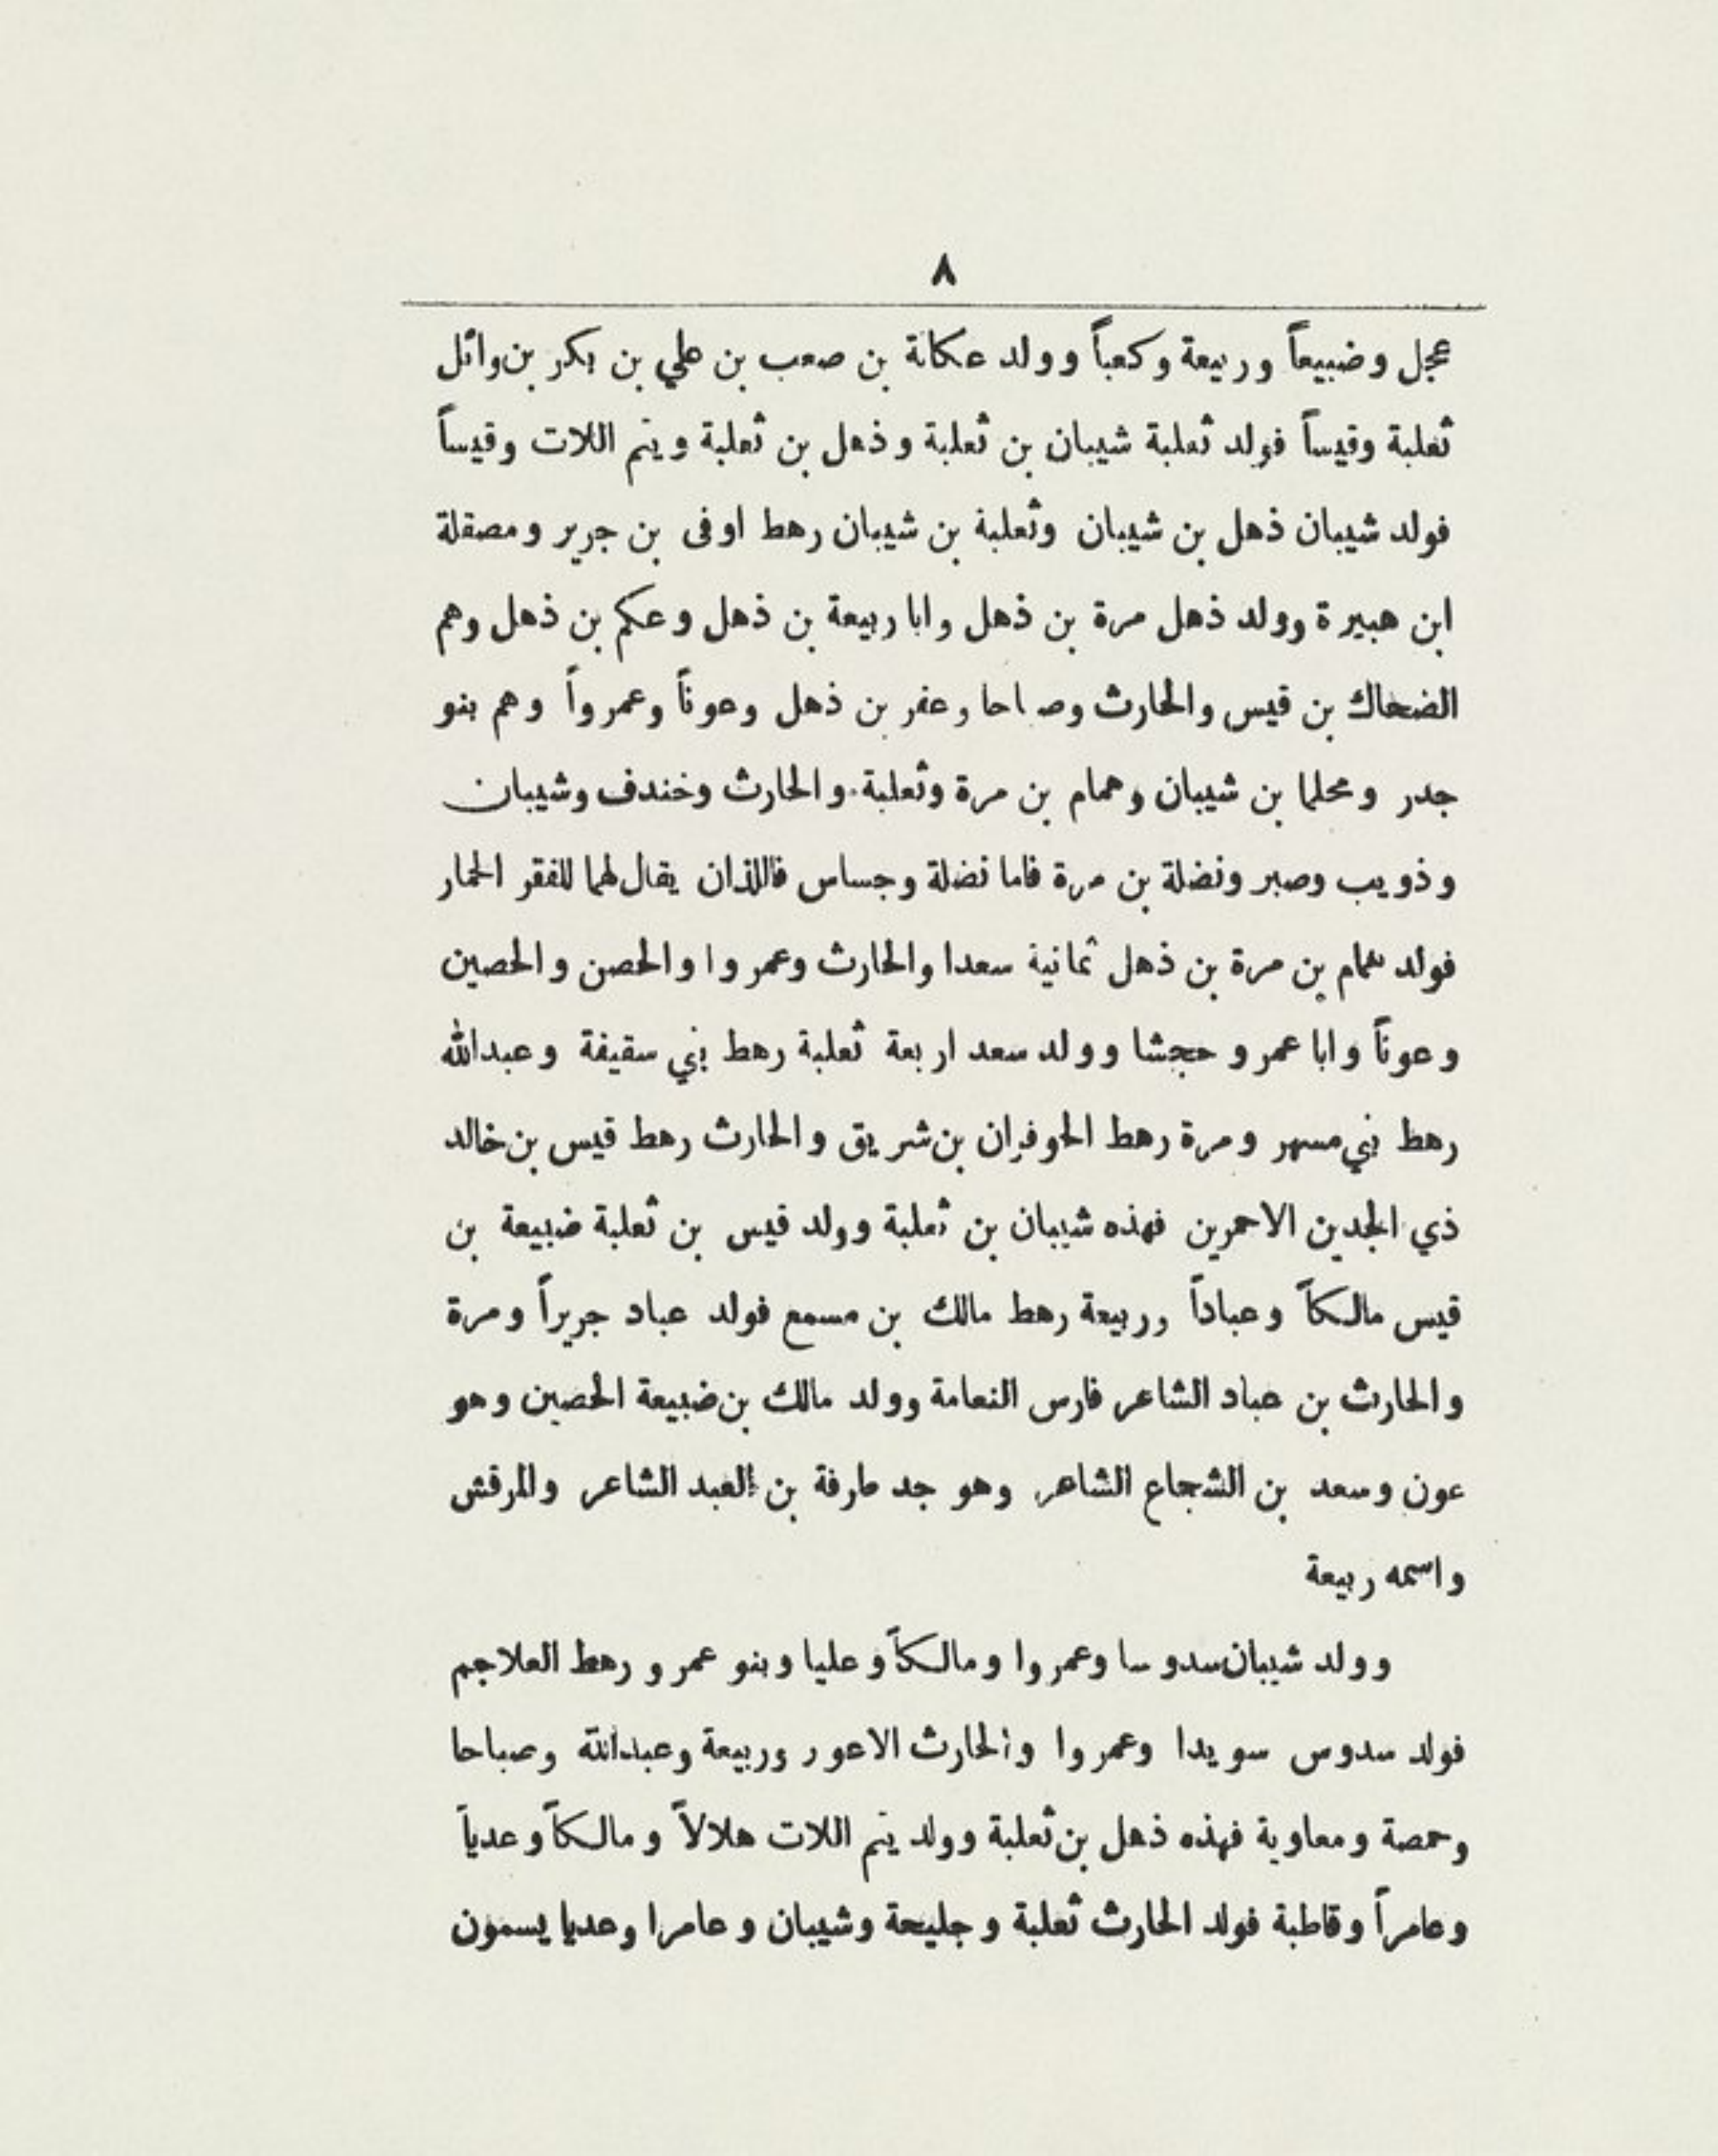 ٨
عجل وضبيعاً وربيعة وكعباً وولد عكانة بن صعب بن علي بن بكر بن وائل
ثعلبة وقيساً فولد ثعلبة شيبان بن ثعلبة وذهل بن ثعلبة ويتم اللات وقيساً
فولد شيبان ذهل بن شيبان وثعلبة بن شيبان رهط اوفى بن جرير ومصقلة
ابن هبيرة وولد ذهل مرة بن ذهل وابا ربيعة بن ذهل وعكم بن ذهل وهم
الضحاك بن قيس والحارث وصاحا وعفر بن ذهل وعوناً وعمرواً وهم بنو
جدر ومحلما بن شيبان وهمام بن مرة وثعلبة والحارث وخندف وشيبان
وذويب وصبر ونضلة بن مرة فاما نضلة وجساس فاللذان يقال لهما للفقر الحمار
فولد همام بن مرة بن ذهل ثمانية سعدا والحارث وعمروا والحصن والحصين
وعوناً وابا عمرو حجشا وولد سعد اربعة ثعلبة رهط بني سقيفة وعبدالله
رهط بني مسهر ومرة رهط الحوفزان بن شريق والحارث رهط قيس بن خالد
ذي الجدين الاحمرين فهذه شيبان بن ثعلبة وولد قيس بن ثعلبة ضبيعة بن
قيس مالكاً وعباداً وربيعة رهط مالك بن مسمع فولد عباد جريراً ومرة
والحارث بن عباد الشاعر فارس النعامة وولد مالك بن ضبيعة الحصين وهو
عون وسعد بن الشجاع الشاعر وهو جد طرفة بن العبد الشاعر والمرقش
واسمه ربيعة
وولد شيبان سدوسا وعمروا ومالكاً وعليا وبنو عمرو رهط العلاجم
فولد سدوس سويدا وعمروا والحارث الاعور وربيعة وعبدالله وصباحا
وحمصة ومعاوية فهذه ذهل بن ثعلبة وولد يتم اللات هلالاً ومالكاً وعدياً
وعامراً وقاطبة فولد الحارث ثعلبة وجليحة وشيبان وعامرا وعديا يسمون